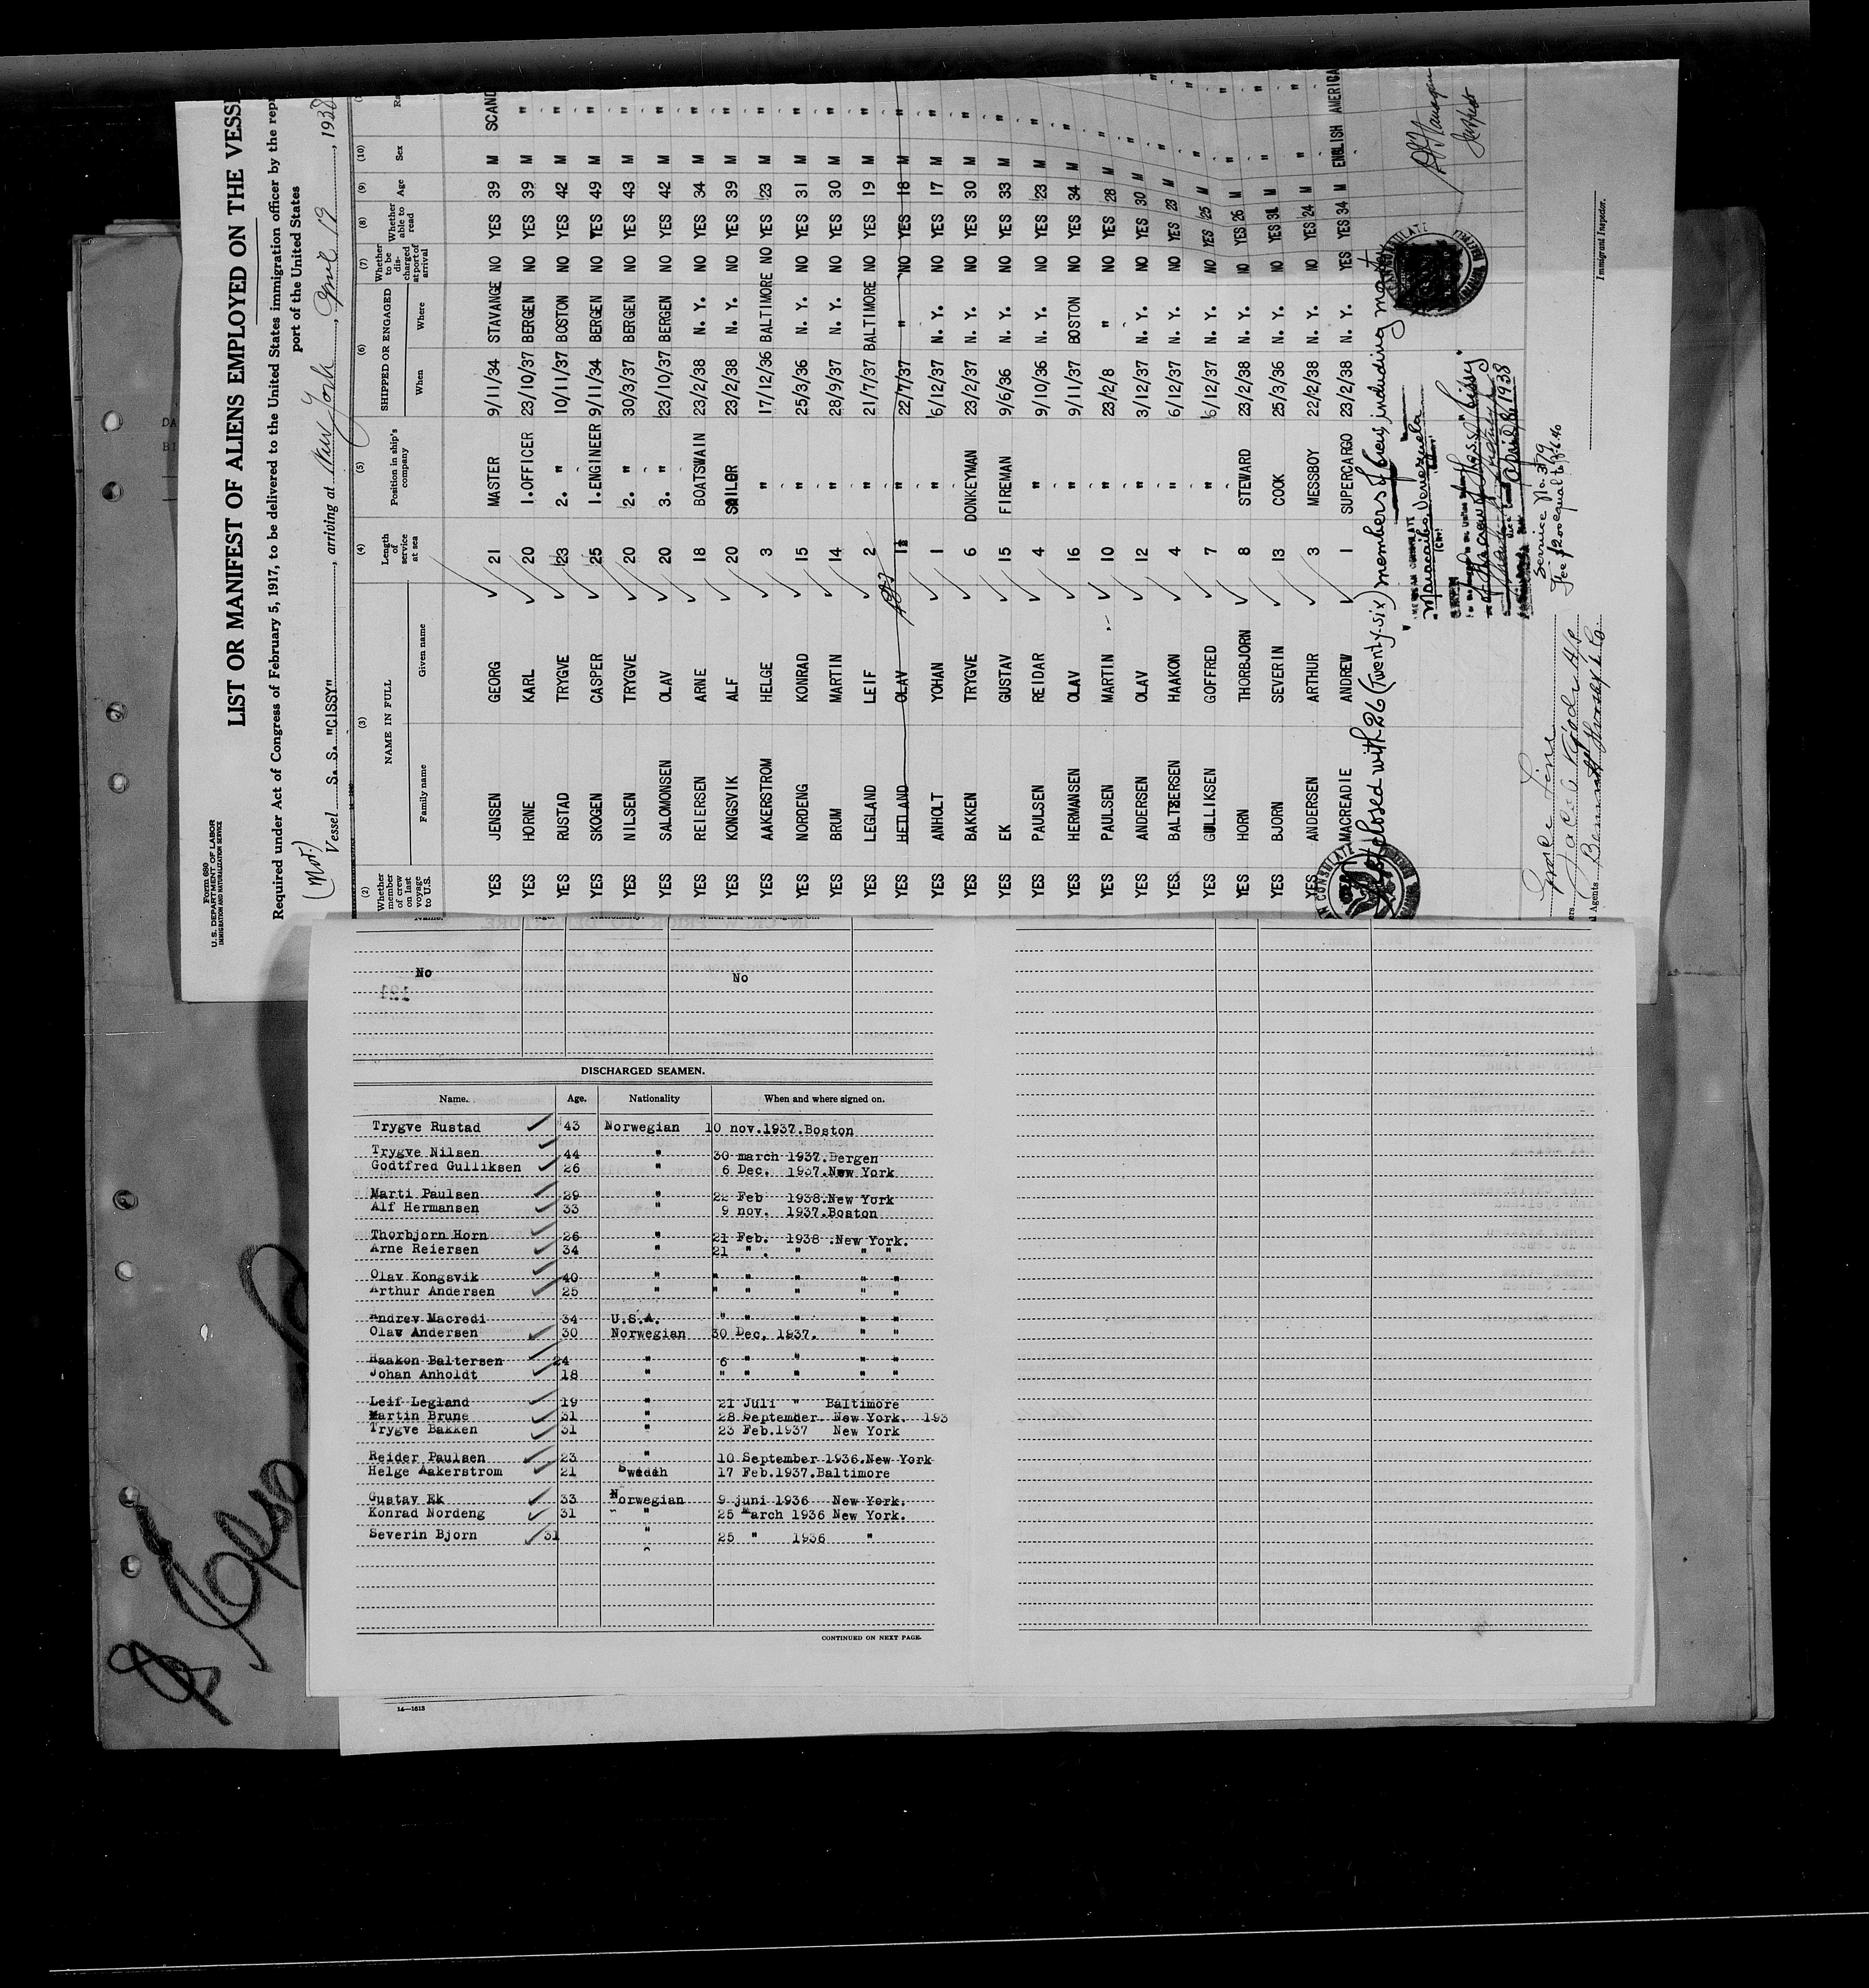 Form 680
U. S. DEPARTMENT OF LABOR
IMMIGRATION AND NATURALIZATION SERVICE
LIST OR MANIFEST OF ALIENS EMPLOYED ON THE VESS
Required under Act of Congress of February 5, 1917, to be delivered to the United States immigration officer by the repr
port of the United States
(Nor.)
Vessel S. S. "CISSY", arriving at New York, April 19, 1938
(2) (3) (4) (5) (6) (7) (8) (9) (10)
Whether member of crew on last voyage to U.S. NAME IN FULL Family name Given name Length of service at sea Position in ship's company SHIPPED OR ENGAGED When Where Whether to be discharged at port of arrival Whether able to read Age Sex Ra
YES JENSEN GEORG 21 MASTER 9/11/34 STAVANGE NO YES 39 M SCAND
YES HORNE KARL 20 1.OFFICER 23/10/37 BERGEN NO YES 39 M "
YES RUSTAD TRYGVE 23 2. " 10/11/37 BOSTON NO YES 42 M "
YES SKOGEN CASPER 25 1.ENGINEER 9/11/34 BERGEN NO YES 49 M "
YES NILSEN TRYGVE 20 2. " 30/3/37 BERGEN NO YES 43 M "
YES SALOMONSEN OLAV 20 3. " 23/10/37 BERGEN NO YES 42 M "
YES REIERSEN ARNE 18 BOATSWAIN 23/2/38 N. Y. NO YES 34 M "
YES KONGSVIK ALF 20 SAILOR 23/2/38 N. Y. NO YES 39 M "
YES AAKERSTROM HELGE 3 " 17/12/36 BALTIMORE NO YES 23 M "
YES NORDENG KONRAD 15 " 25/3/36 N. Y. NO YES 31 M "
YES BRUM MARTIN 14 " 28/9/37 N. Y. NO YES 30 M "
YES LEGLAND LEIF 2 " 21/7/37 BALTIMORE NO YES 19 M "
YES HETLAND OLAV 1½ " 22/7/37 " NO YES 18 M "
YES ANHOLT YOHAN 1 " 6/12/37 N. Y. NO YES 17 M "
YES BAKKEN TRYGVE 6 DONKEYMAN 23/2/37 N. Y. NO YES 30 M "
YES EK GUSTAV 15 FIREMAN 9/6/36 N. Y. NO YES 33 M "
YES PAULSEN REIDAR 4 " 9/10/36 N. Y. NO YES 23 M "
YES HERMANSEN OLAV 16 " 9/11/37 BOSTON NO YES 34 M "
YES PAULSEN MARTIN 10 " 23/2/8 " NO YES 28 M "
YES ANDERSEN OLAV 12 " 3/12/37 N. Y. NO YES 30 M "
YES BALTZERSEN HAAKON 4 " 6/12/37 N. Y. NO YES 23 M "
YES GULLIKSEN GOFFRED 7 " 6/12/37 N. Y. NO YES 25 M "
YES HORN THORBJORN 8 STEWARD 23/2/38 N. Y. NO YES 26 M "
YES BJORN SEVERIN 13 COOK 25/3/36 N. Y. NO YES 31 M "
YES ANDERSEN ARTHUR 3 MESSBOY 22/2/38 N. Y. NO YES 24 M "
MACREADIE ANDREW 1 SUPERCARGO 23/2/38 N. Y. YES YES 34 M ENGLISH AMERICA
closed with 26 (Twenty-six) members of crew, including master
Maracaibo, Venezuela
April 8, 1938
Service No. 379
Fee $2.00 equal to
Agents
Immigrant Inspector.
No No
DISCHARGED SEAMEN.
Name. Age. Nationality When and where signed on.
Trygve Rustad 43 Norwegian 10 nov.1937.Boston
Trygve Nilsen 44 " 30 march 1937.Bergen
Godtfred Gulliksen 26 " 6 Dec. 1937.New York
Marti Paulsen 29 " 22 Feb 1938.New York
Alf Hermansen 33 " 9 nov. 1937.Boston
Thorbjorn Horn 26 " 21 Feb. 1938 .New York.
Arne Reiersen 34 " 21 " . " " "
Olav Kongsvik 40 " " " " " "
Arthur Andersen 25 " " " " " "
Andrev Macredi 34 U.S.A. " " " " "
Olav Andersen 30 Norwegian 30 Dec. 1937. " "
Haakon Baltersen 24 " 6 " " " "
Johan Anholdt 18 " " " " " "
Leif Legland 19 " 21 Juli " Baltimore
Martin Brune 31 " 28 September New York. 193
Trygve Bakken 31 " 23 Feb.1937 New York
Reider Paulsen 23 " 10 September 1936.New York
Helge Aakerstrom 21 Swedeh 17 Feb.1937.Baltimore
Gustav Ek 33 Norwegian 9 juni 1936 New York.
Konrad Nordeng 31 " 25 March 1936 New York.
Severin Bjorn 31 " 25 " 1936 "
CONTINUED ON NEXT PAGE.
14—1613